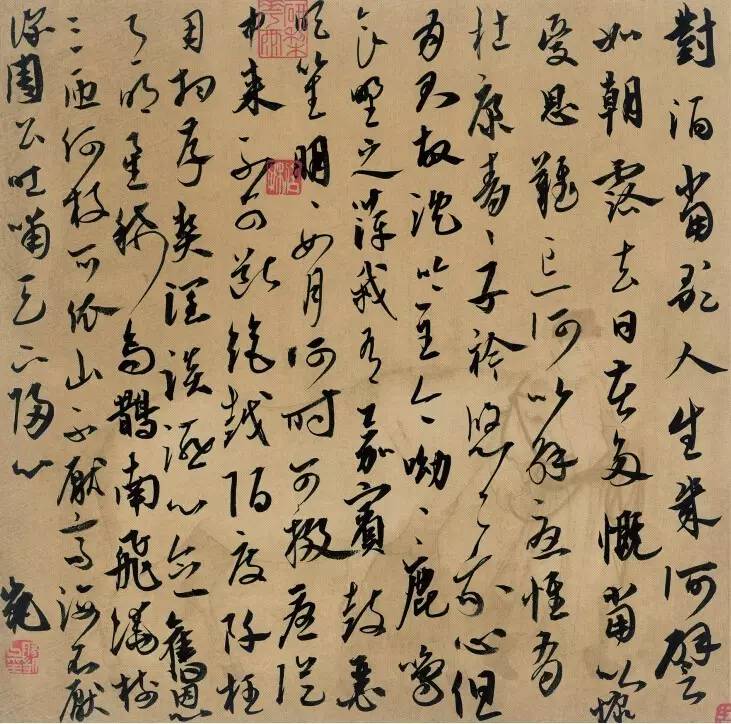 對酒當歌人生幾何譬
如朝露去日苦多慨當以慷
憂思難忘何以解憂惟有
杜康青〻子衿悠〻我心但
為君故沈吟至今呦〻鹿鳴
食野之萍我有嘉賓鼓瑟
吹笙明〻如月何時可掇憂從
中來不可斷絕越陌度阡枉
用相存契闊談讌心念舊恩
月明星稀烏鵲南飛繞樹
三匝何枝可依山不厭高海不厭
深周公吐哺天下歸心